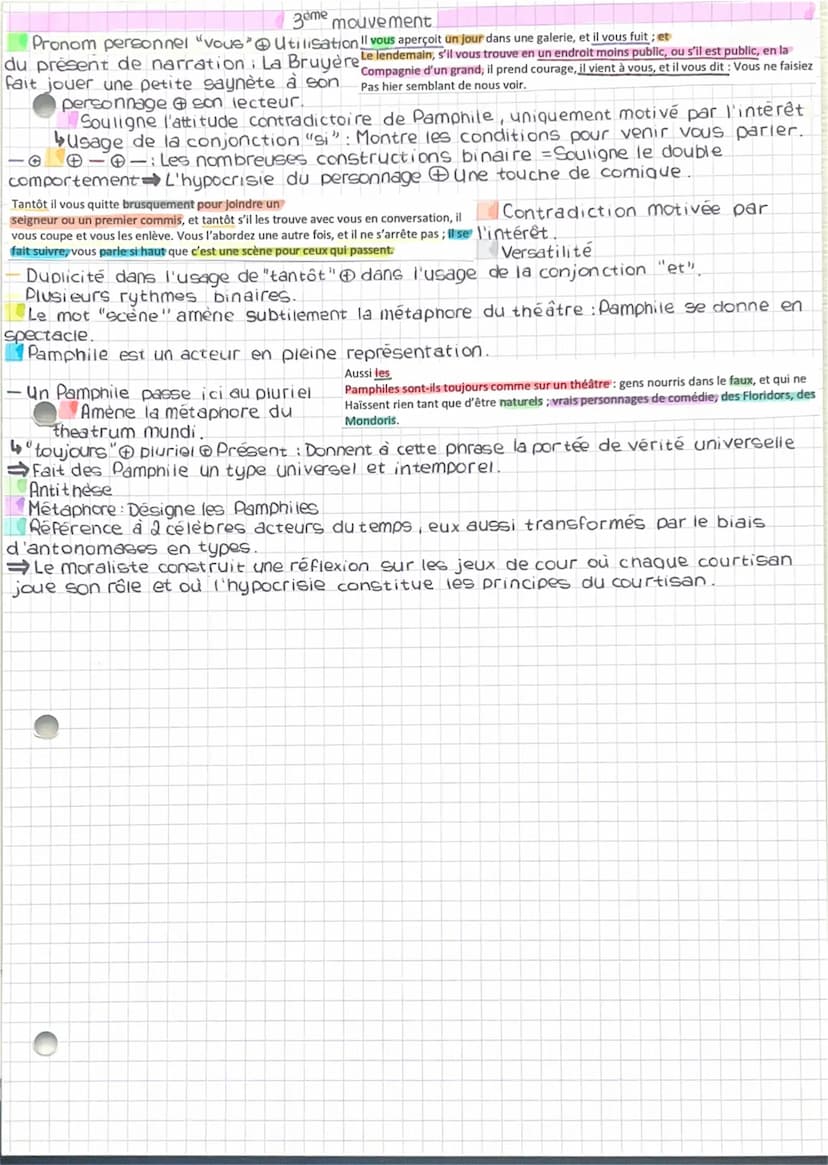 3ème mouvement
Pronom personnel "vous" ⊕ Utilisation
du présent de narration : La Bruyère
fait jouer une petite saynète à son
personnage ⊕ son lecteur.
Il vous aperçoit un jour dans une galerie, et il vous fuit ; et
Le lendemain, s'il vous trouve en un endroit moins public, ou s'il est public, en la
Compagnie d'un grand, il prend courage, il vient à vous, et il vous dit : Vous ne faisiez
Pas hier semblant de nous voir.
Souligne l'attitude contradictoire de Pamphile, uniquement motivé par l'intérêt
↳Usage de la conjonction "si" : Montre les conditions pour venir vous parler.
— ⊕ ⊕ — ⊕ — : Les nombreuses constructions binaire = Souligne le double
comportement ⇒ L'hypocrisie du personnage ⊕ Une touche de comique.
Tantôt il vous quitte brusquement pour joindre un
seigneur ou un premier commis, et tantôt s'il les trouve avec vous en conversation, il
vous coupe et vous les enlève. Vous l'abordez une autre fois, et il ne s'arrête pas ; il se
fait suivre, vous parle si haut que c'est une scène pour ceux qui passent.
Contradiction motivée par
l'intérêt.
Versatilité
— Duplicité dans l'usage de "tantôt" ⊕ dans l'usage de la conjonction "et".
Plusieurs rythmes binaires.
Le mot "scène" amène subtilement la métaphore du théâtre : Pamphile se donne en
spectacle.
Pamphile est un acteur en pleine représentation.
Aussi les
Pamphiles sont-ils toujours comme sur un théâtre : gens nourris dans le faux, et qui ne
Haïssent rien tant que d'être naturels ; vrais personnages de comédie, des Floridors, des
Mondoris.
— Un Pamphile passe ici au pluriel
Amène la métaphore du
theatrum mundi.
↳"toujours" ⊕ pluriel ⊕ Présent : Donnent à cette phrase la portée de vérité universelle
⇒ Fait des Pamphile un type universel et intemporel.
Antithèse
Métaphore : Désigne les Pamphiles
Référence à 2 célèbres acteurs du temps, eux aussi transformés par le biais
d'antonomases en types.
⇒ Le moraliste construit une réflexion sur les jeux de cour où chaque courtisan
joue son rôle et où l'hypocrisie constitue les principes du courtisan.